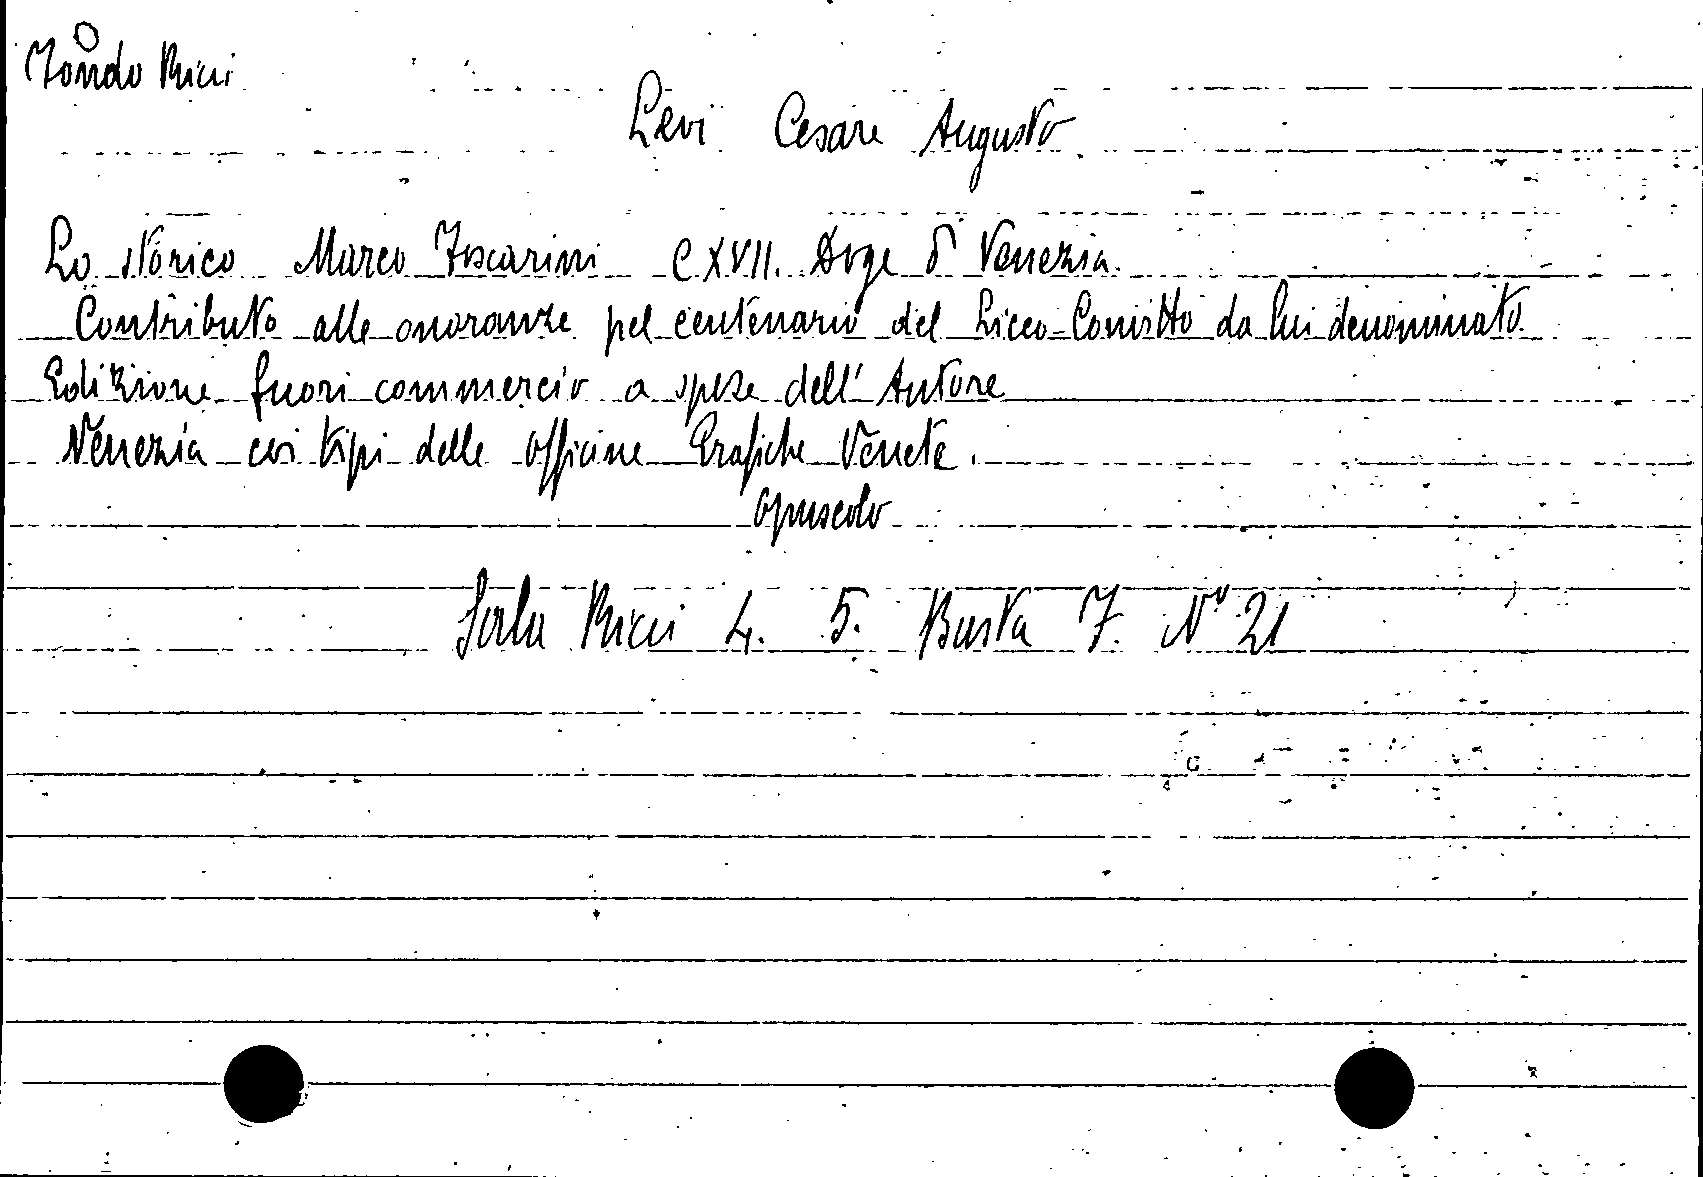 Fondo Ricci
Levi Cesare Augusto
Lo storico Marco Foscarini CXVII. Doge di Venezia.
Contributo alle onoranze pel centenario del Liceo-Convitto da lui denominato.
Edizione fuori commercio a spese dell'Autore
Venezia coi tipi delle Officine Grafiche Venete.
opuscolo
Sala Ricci 4. 5. Busta 7. N° 21